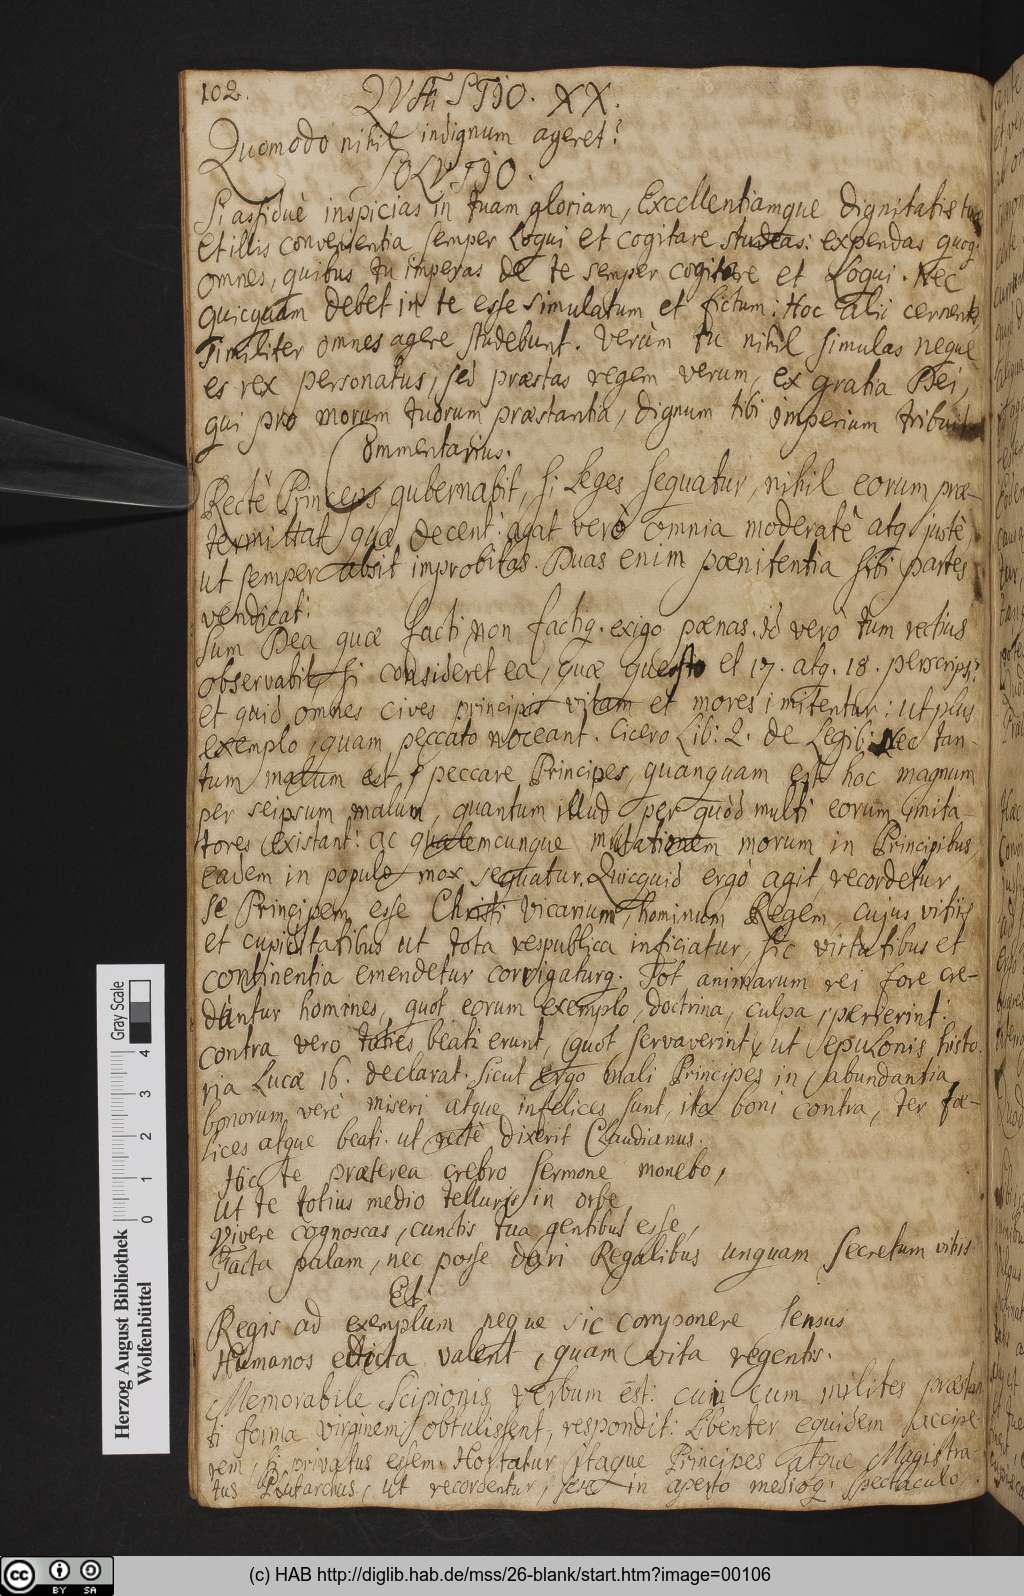 102.
QVÆSTIO. XX.
Quomodo nihil indignum ageret?
SOLVTIO.
Si assiduè inspicias in tuam gloriam, Excellentiamque dignitatis tuæ
et illis convenientia semper Loqui et cogitare studeas: expendas quoq;
omnes, quibus tu imperas de te semper cogitare et Loqui. Nec
quicquam debet in te esse simulatum et fictum: Hoc alii cernentes
similiter omnes agere studebunt. Verùm tu nihil simulas neque
es rex personatus, sed præstas regem verum, ex gratia Dei,
qui pro morum tuorum præstantia, dignum tibi imperium tribuit.
Commentarius.
Rectè Princeps gubernabit, si Leges sequatur, nihil eorum præ-
termittat quæ decent: agat verò omnia moderatè atq; justè,
ut semper absit improbitas. Duas enim pœnitentia sibi partes
vendicat:
Sum Dea quæ facti non factiq. exigo pœnas. Id verò tum rectius
observabit si consideret ea, quæ quæsto et 17. atq. 18. perscripsi:
et quid omnes cives principis vitam et mores imitentur: ut plus
exemplo, quam peccato noceant. Cicero Lib: 2. de Legib: Nec tan-
tum malum est, peccare Principes, quanquam est hoc magnum
per seipsum malum, quantum illud per quòd multi eorum imita-
tores existant: ac qualemcunque mutationem morum in Principibus,
eadem in populo mox sequatur. Quicquid ergò agit, recordetur
se Principem esse Christi Vicarium, hominum Regem, cujus vitiis
et cupiditatibus ut tota respublica inficiatur, sic virtutibus et
continentia emendetur corrigaturq. Tot animarum rei fore cre-
dantur homines, quot eorum exemplo, doctrina, culpa, perierint:
contra vero toties beati erunt, quot servaverint, ut Epulonis histo-
ria Lucæ 16. declarat. Sicut ergo mali Principes in abundantia
bonorum, verè miseri atque infelices sunt, ita boni contra, ter fœ-
lices atque beati. ut rectè dixerit Claudianus.
Hoc te præterea crebro sermone monebo,
Ut te totius medio telluris in orbe
Vivere cognoscas, cunctis tua gentibus esse,
Facta palam, nec posse dari Regalibus unquam secretum vitiis
Et
Regis ad exemplum neque sic componere sensus
Humanos edicta valent, quam vita regentis.
Memorabile Scipionis verbum est: cui cum milites præstan-
ti forma virginem obtulissent, respondit: Libenter equidem accipe-
rem, si privatus essem. Hortatur itaque Principes atque Magistra-
tus Plutarchus, ut recordentur, sese in aperto medioq. spectaculo
Herzog August Bibliothek
Wolfenbüttel
0 1 2 3 4
Gray Scale
(c) HAB http://diglib.hab.de/mss/26-blank/start.htm?image=00106
cc BY SA